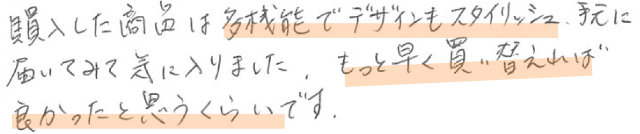 購入した商品は多機能でデザインもスタイリッシュ、手元に
届いてみて気に入りました。もっと早く買い替えれば
良かったと思うくらいです。